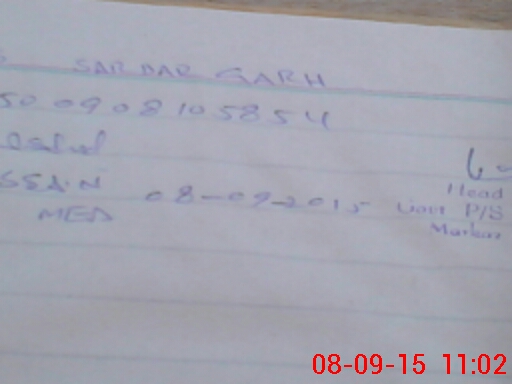 SARDAR GARH
50 0908105854
SSAIN 08-09-2015
MED
Head
P/S
Markaz
08-09-15 11:02